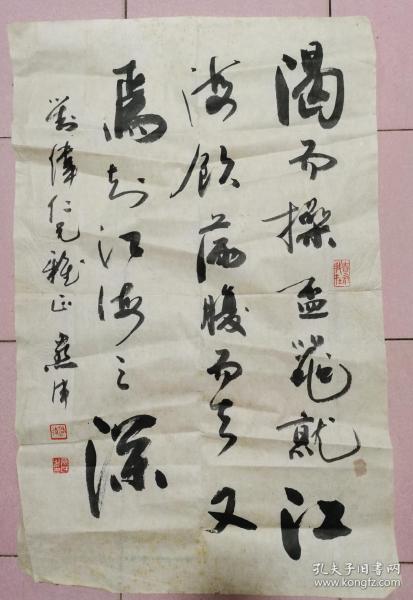 渴而操瓢就江
海飲满腹而去又
焉知江海之深
劉偉仁兄雅正
孔夫子旧书网
www.kongfz.com